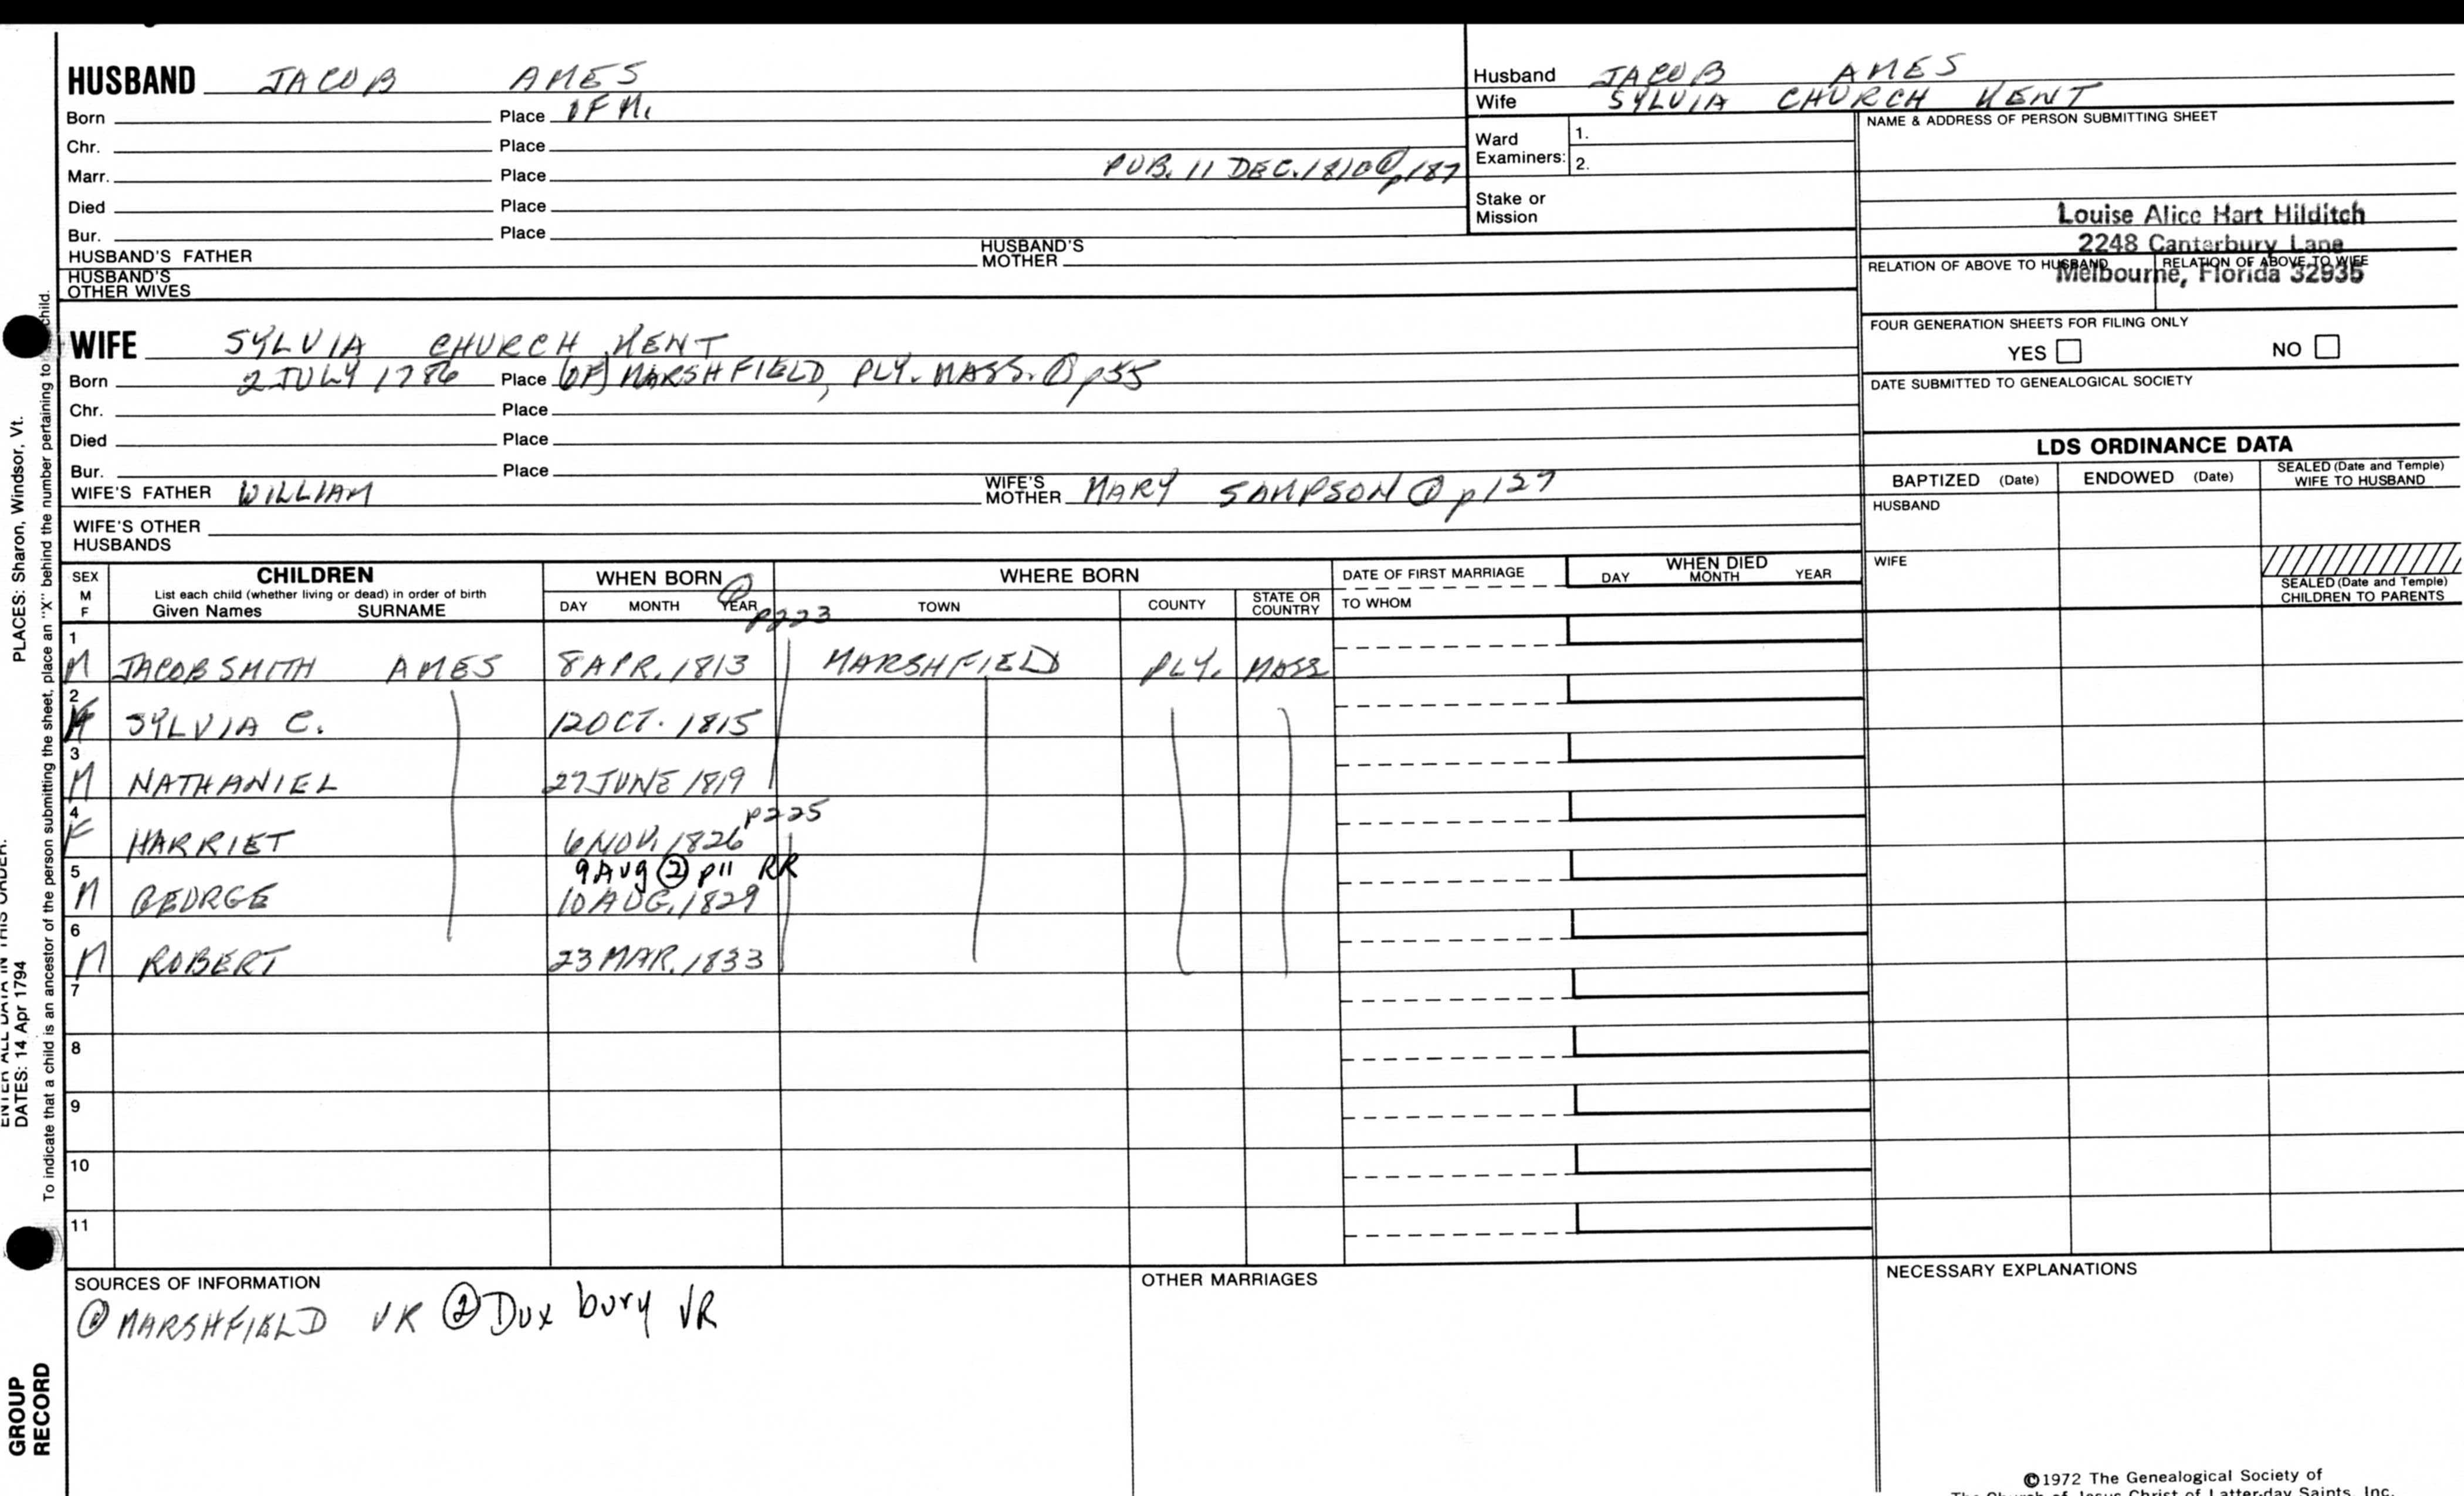 HUSBAND JACOB AMES
Born Place OF M.
Chr. Place
Marr. Place PUB. 11 DEC. 1810 ① p187
Died Place
Bur. Place
HUSBAND'S FATHER HUSBAND'S MOTHER
HUSBAND'S OTHER WIVES
Husband JACOB AMES
Wife SYLVIA CHURCH KENT
Ward Examiners: 1.
2.
Stake or Mission
NAME & ADDRESS OF PERSON SUBMITTING SHEET
Louise Alice Hart Hilditch
2248 Canterbury Lane
Melbourne, Florida 32935
RELATION OF ABOVE TO HUSBAND RELATION OF ABOVE TO WIFE
FOUR GENERATION SHEETS FOR FILING ONLY
YES NO
DATE SUBMITTED TO GENEALOGICAL SOCIETY
WIFE SYLVIA CHURCH KENT
Born 2 JULY 1786 Place (OF) MARSHFIELD, PLY. MASS. ① p55
Chr. Place
Died Place
Bur. Place
WIFE'S FATHER WILLIAM WIFE'S MOTHER MARY SAMPSON ① p127
WIFE'S OTHER HUSBANDS
LDS ORDINANCE DATA
BAPTIZED (Date) ENDOWED (Date) SEALED (Date and Temple) WIFE TO HUSBAND
HUSBAND
WIFE
SEALED (Date and Temple) CHILDREN TO PARENTS
SEX M F
CHILDREN
List each child (whether living or dead) in order of birth
Given Names SURNAME
WHEN BORN ① p223
DAY MONTH YEAR
WHERE BORN
TOWN COUNTY STATE OR COUNTRY
DATE OF FIRST MARRIAGE
TO WHOM
WHEN DIED
DAY MONTH YEAR
1 M JACOB SMITH AMES 8 APR. 1813 MARSHFIELD PLY. MASS
2 F SYLVIA C. 12 OCT. 1815
3 M NATHANIEL 27 JUNE 1819
p225
4 F HARRIET 6 NOV. 1826
9 Aug ② p11 RR
5 M GEORGE 10 AUG. 1829
6 M ROBERT 23 MAR. 1833
7
8
9
10
11
SOURCES OF INFORMATION
① MARSHFIELD VR ② Duxbury VR
OTHER MARRIAGES
NECESSARY EXPLANATIONS
©1972 The Genealogical Society of
The Church of Jesus Christ of Latter-day Saints, Inc.
PLACES: Sharon, Windsor, Vt.
To indicate that a child is an ancestor of the person submitting the sheet, place an "X" behind the number pertaining to child.
ENTER ALL DATA IN THIS ORDER:
DATES: 14 Apr 1794
GROUP
RECORD